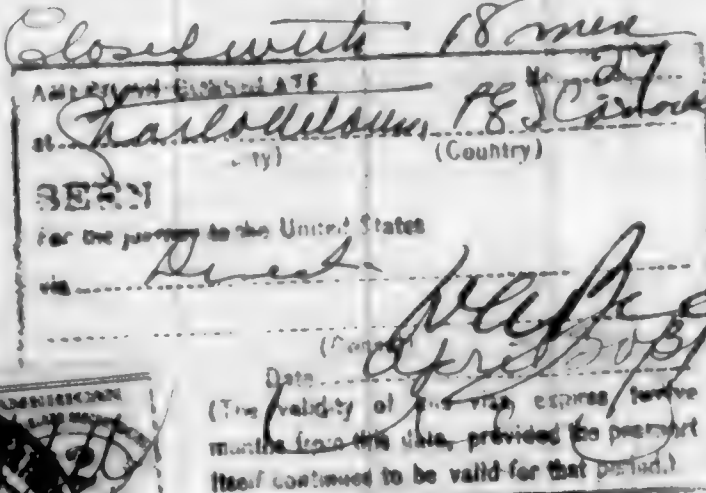 Closed with 18 men
AMERICAN CONSULATE No. 27
at Charlottetown, P.E.I. Canada
(City) (Country)
SEEN
For the journey to the United States
via Direct
(Consul)
Date April 30
(The validity of this visa expires twelve
months from this date, provided the passport
itself continues to be valid for that period.)